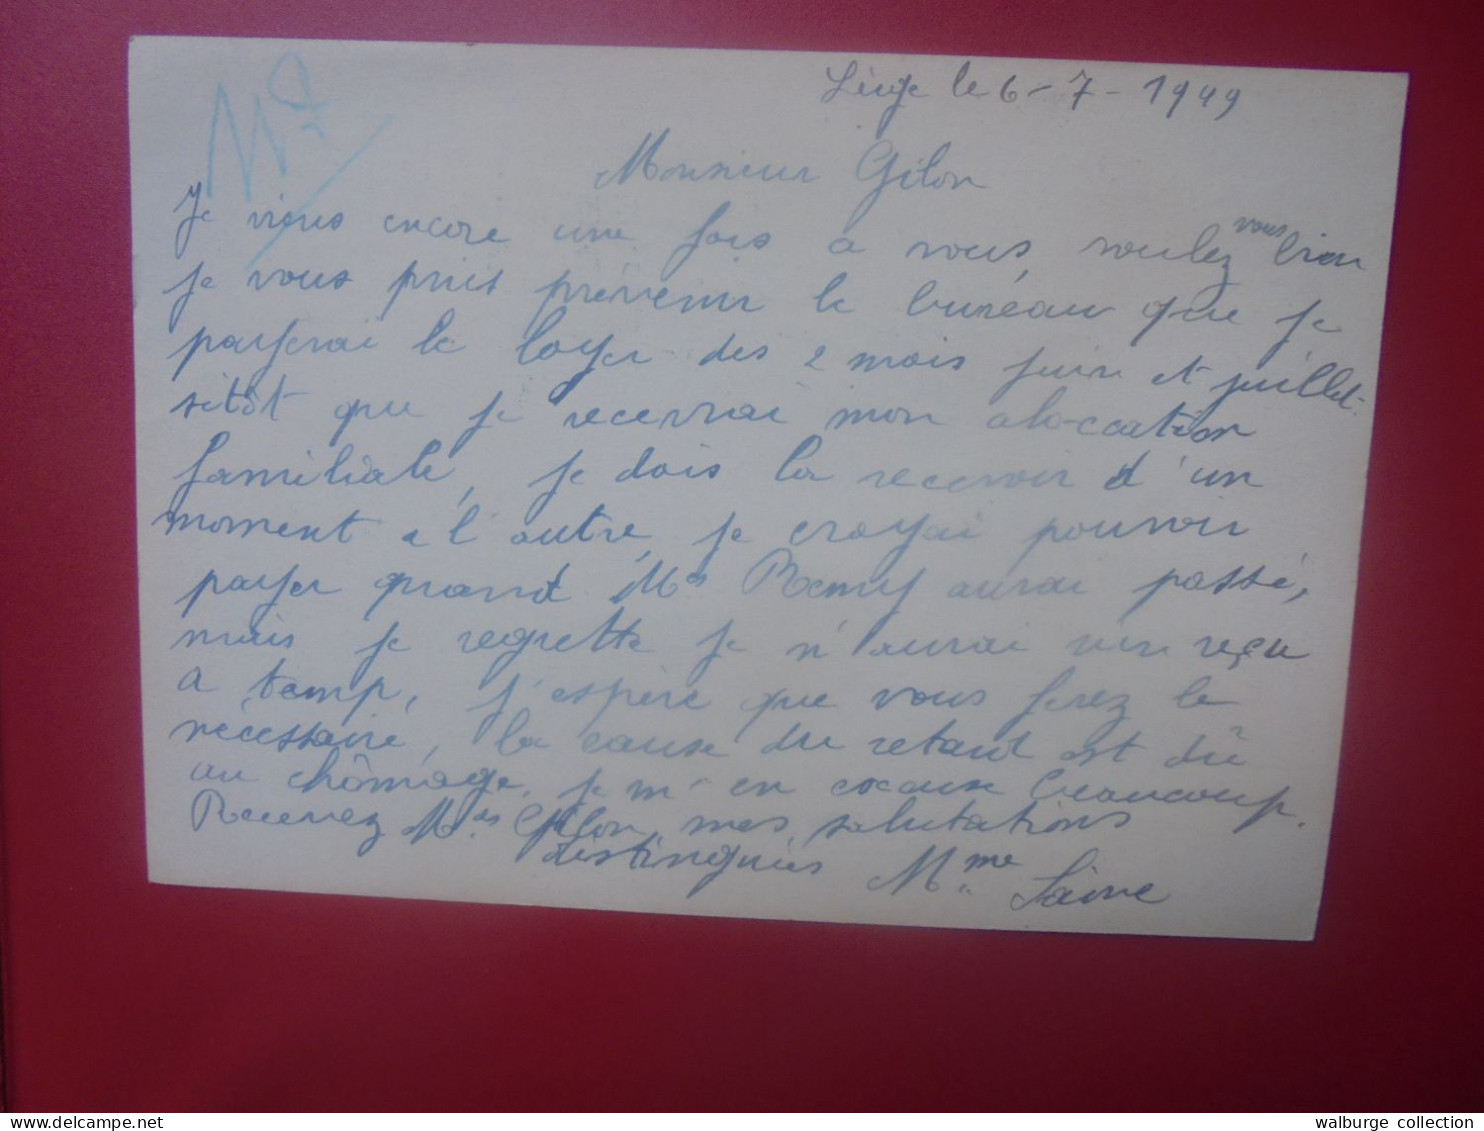 Liège le 6-7-1949
Monsieur Gilon
Je viens encore une fois a vous, voulez vous bien
je vous pries prévenir le buréau que je
payerai le loyer des 2 mois juin et juillet.
sitôt que je recevrai mon alo-ccation
familiale, je dois la recevoir d'un
moment a l'autre, je croyai pouvoir
payer quand Mr Remy aurai passé,
mais je regrette je n'aurai rien reçu
a temp, j'espère que vous ferez le
nécéssaire, la cause du retard est dû
au chômage, je m'en excuse beaucoup.
Recevez Mr Gilon, mes salutations
distinguées Mme
delcampe.net
walburge collection